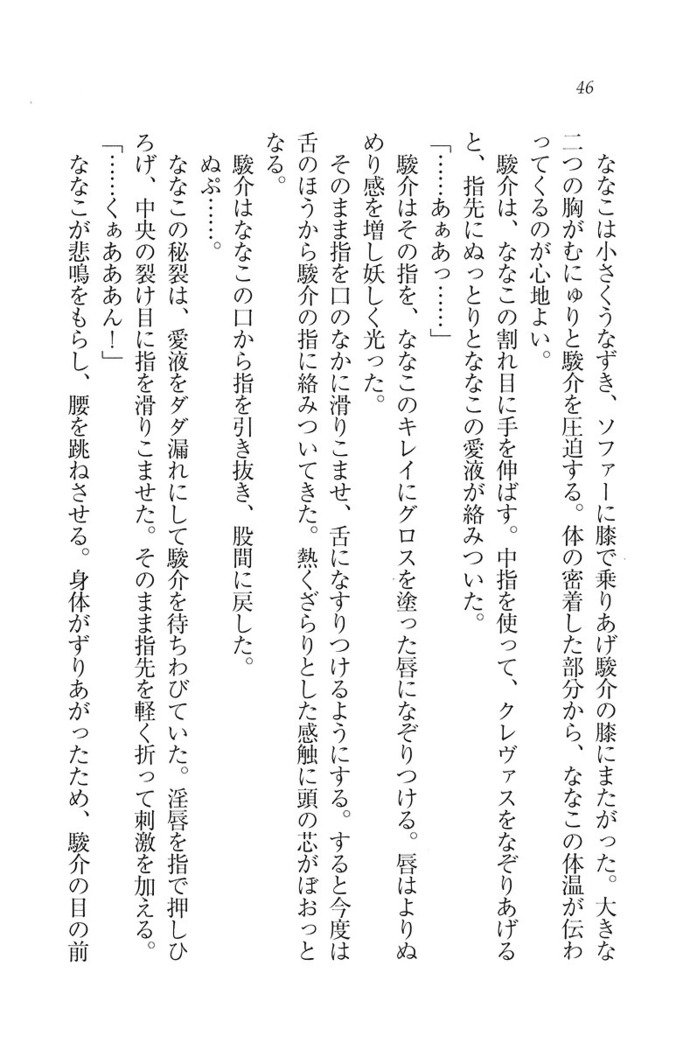 46
ななこは小さくうなずき、ソファーに膝で乗りあげ駿介の膝にまたがった。大きな
二つの胸がむにゅりと駿介を圧迫する。体の密着した部分から、ななこの体温が伝わ
ってくるのが心地よい。
駿介は、ななこの割れ目に手を伸ばす。中指を使って、クレヴァスをなぞりあげる
と、指先にぬっとりとななこの愛液が絡みついた。
「……あぁあっ……」
駿介はその指を、ななこのキレイにグロスを塗った唇になぞりつける。唇はよりぬ
めり感を増し妖しく光った。
そのまま指を口のなかに滑りこませ、舌になすりつけるようにする。すると今度は
舌のほうから駿介の指に絡みついてきた。熱くざらりとした感触に頭の芯がぼおっと
なる。
駿介はななこの口から指を引き抜き、股間に戻した。
ぬぷ……。
ななこの秘裂は、愛液をダダ漏れにして駿介を待ちわびていた。淫唇を指で押しひ
ろげ、中央の裂け目に指を滑りこませた。そのまま指先を軽く折って刺激を加える。
「……くぁあああん！」
ななこが悲鳴をもらし、腰を跳ねさせる。身体がずりあがったため、駿介の目の前